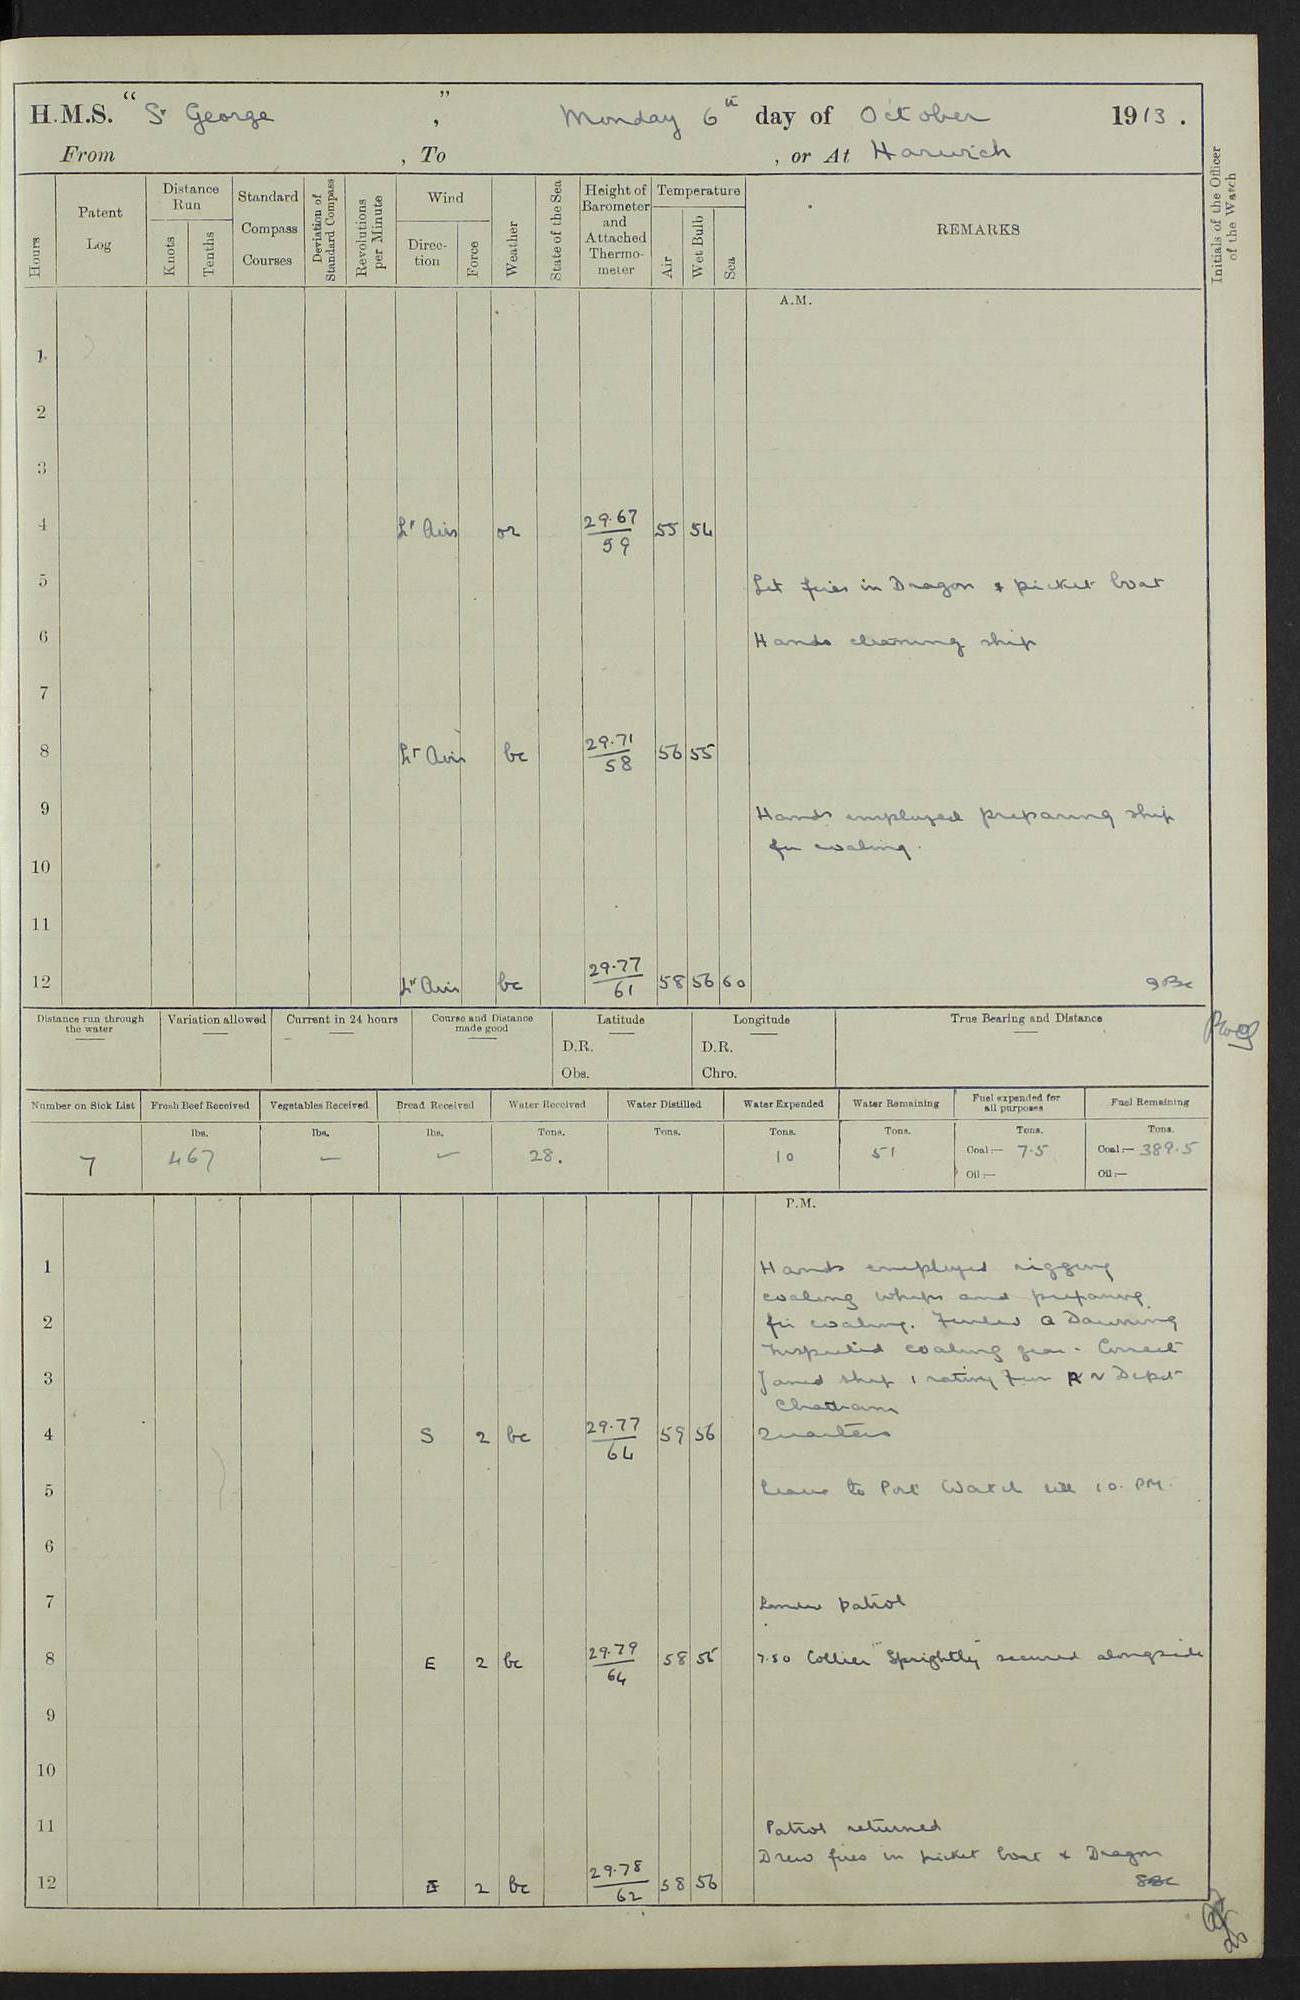 H.M.S. “ St George ” , Monday 6th day of October 1913 .
From , To , or At Harwich
Hours
Patent Log
Distance Run
Knots
Tenths
Standard Compass Courses
Deviation of Standard Compass
Revolutions per Minute
Wind
Direction
Force
Weather
State of the Sea
Height of Barometer and Attached Thermometer
Temperature
Air
Wet Bulb
Sea
REMARKS
Initials of the Officer of the Watch
A.M.
1
2
3
4 Lt Airs or 29.67/59 55 54
5 Lit fires in Dragon & picket boat
6 Hands cleaning ship
7
8 Lt Airs bc 29.71/58 56 55
9 Hands employed preparing ship
for coaling.
10
11
12 Lt Airs bc 29.77/61 58 56 60
Distance run through the water
Variation allowed
Current in 24 hours
Course and Distance made good
Latitude
D.R.
Obs.
Longitude
D.R.
Chro.
True Bearing and Distance
Number on Sick List 7
Fresh Beef Received lbs. 467
Vegetables Received lbs. —
Bread Received lbs. —
Water Received Tons. 28.
Water Distilled Tons.
Water Expended Tons. 10
Water Remaining Tons. 51
Fuel expended for all purposes Tons. Coal:— 7.5 Oil:—
Fuel Remaining Tons. Coal:— 389.5 Oil:—
P.M.
1 Hands employed rigging
coaling whips and preparing
2 for coaling.
Inspected coaling gear - Correct
3 Joined ship 1 rating from RN Depot
Chatham
4 S 2 bc 29.77/64 59 56 Quarters
5 Leave to Port Watch till 10. PM.
6
7 Landed patrol
8 E 2 bc 29.79/64 58 55 7.50 Collier "Sprightly" secured alongside
9
10
11 Patrol returned
Drew fires in picket boat & Dragon
12 E 2 bc 29.78/62 58 56